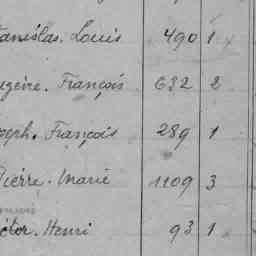 tanislas. Louis 490 1
ugène. François 632 2
oseph. François 289 1
Pierre. Marie 1109 3
ictor. Henri 93 1